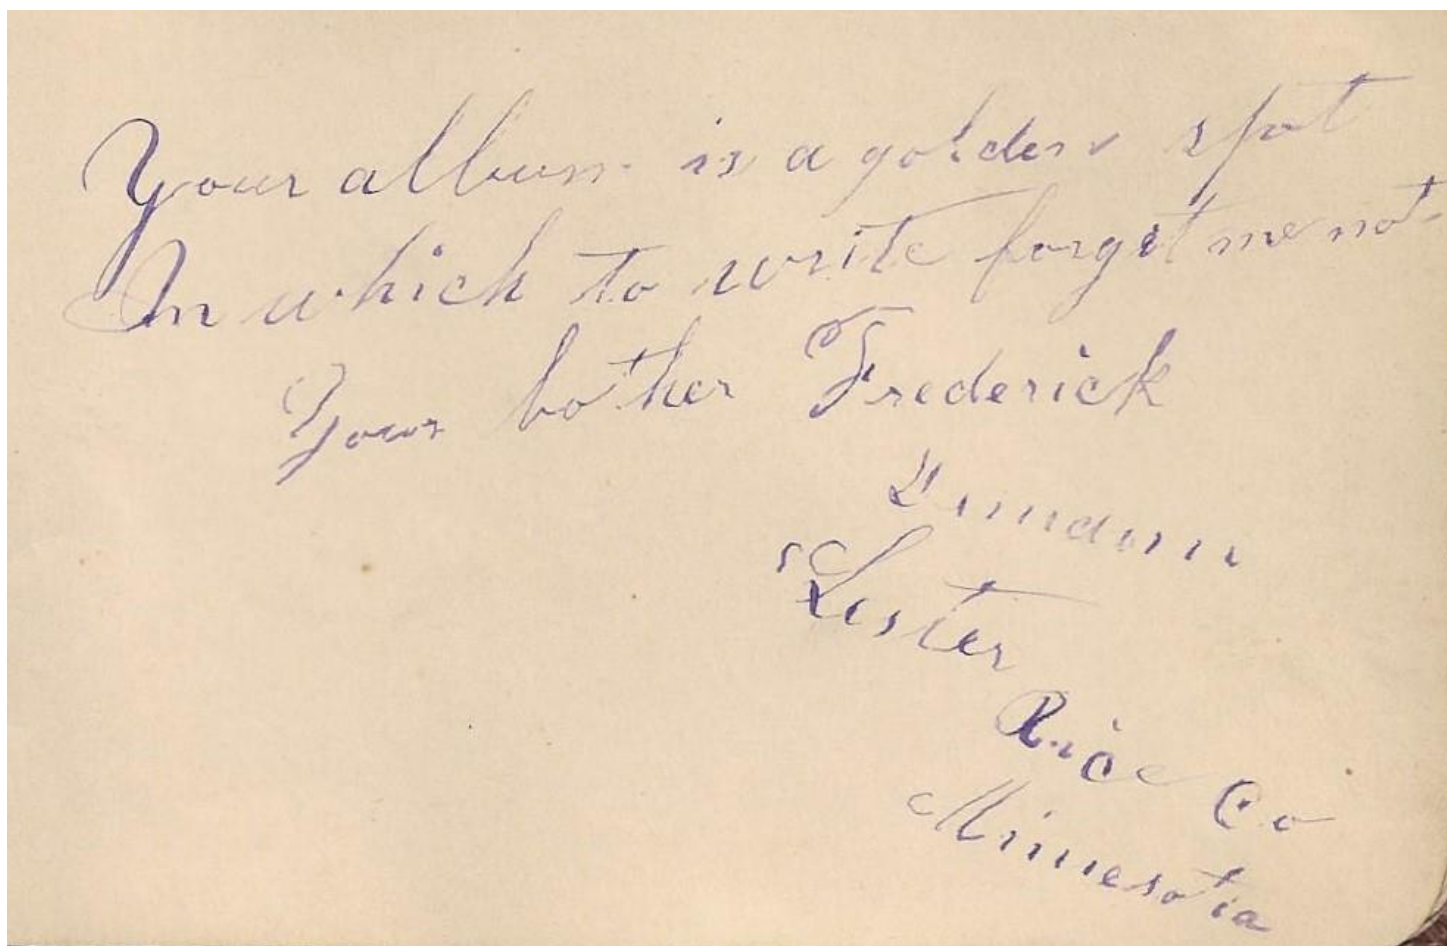 Your album is a golden spot
In which to write forget me not
Your bother Frederick
Lester
Rice Co
Minnesota